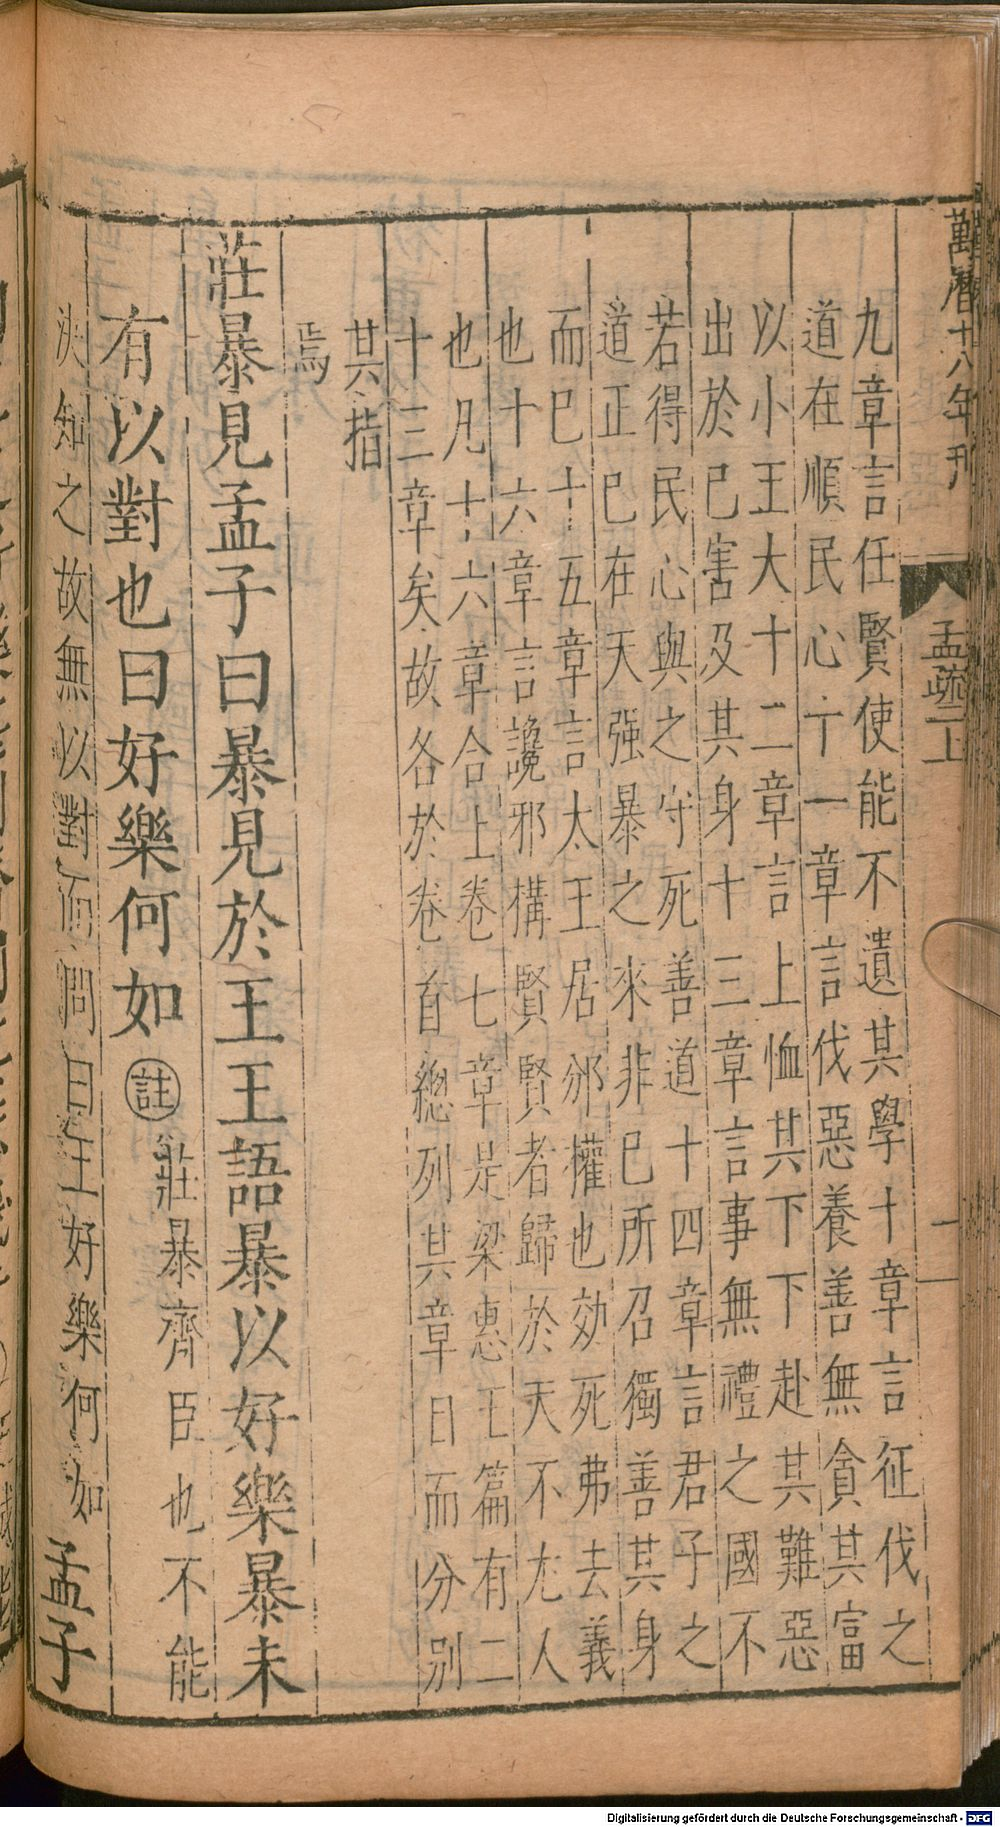 萬曆十八年刊
孟疏二上
一
九章言任賢使能不遺其學十章言征伐之
道在順民心十一章言伐惡養善無貪其富
以小王大十二章言上恤其下下赴其難惡
出於已害及其身十三章言事無禮之國不
若得民心與之守死善道十四章言君子之
道正已在天强暴之來非已所召獨善其身
而已十五章言太王居邠權也効死弗去義
也十六章言讒邪構賢賢者歸於天不尤人
也凡十六章合上卷七章是梁惠王篇有二
十三章矣故各於卷首總列其章目而分別
其指
焉
莊暴見孟子曰暴見於王王語暴以好樂暴未
有以對也曰好樂何如 註 莊暴齊臣也不能
決知之故無以對而問曰王好樂何如 孟子
Digitalisierung gefördert durch die Deutsche Forschungsgemeinschaft - DFG